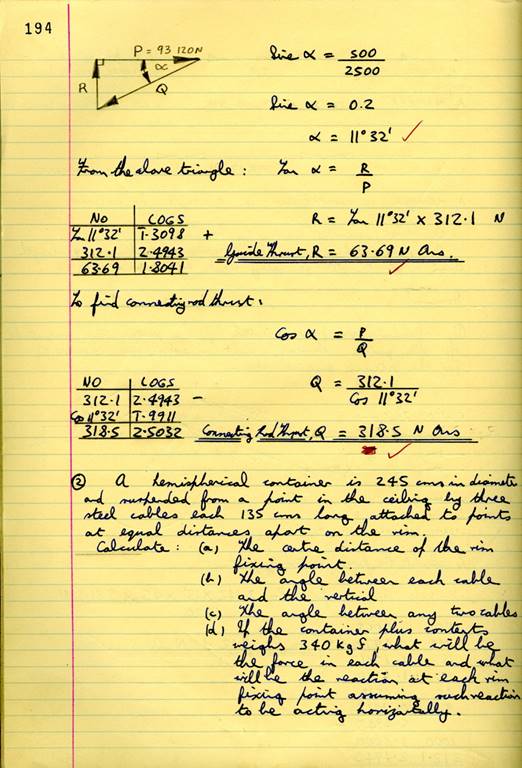 194
P = 93 120N
α
R
Q
Sine α = 500
2500
Sine α = 0.2
α = 11° 32'
From the above triangle : Tan α = R
P
NO LOGS
Tan 11°32' 1.3098
312.1 2.4943 +
63.69 1.8041
R = Tan 11° 32' × 312.1 N
Guide Thrust, R = 63.69 N Ans.
To find connecting rod thrust :
Cos α = P
Q
NO LOGS
312.1 2.4943 -
Cos 11°32' 1.9911
318.5 2.5032
Q = 312.1
Cos 11° 32'
Connecting Rod Thrust, Q = 318.5 N Ans
② A hemispherical container is 245 cms in diameter
and suspended from a point in the ceiling by three
steel cables each 135 cms long, attached to points
at equal distances apart on the rim.
Calculate : (a) The centre distance of the rim
fixing point.
(b) The angle between each cable
and the vertical
(c) The angle between any two cables
(d) If the container plus contents
weighs 340 kgf, what will be
the force in each cable and what
will be the reaction at each rim
fixing point assuming such reaction
to be acting horizontally.